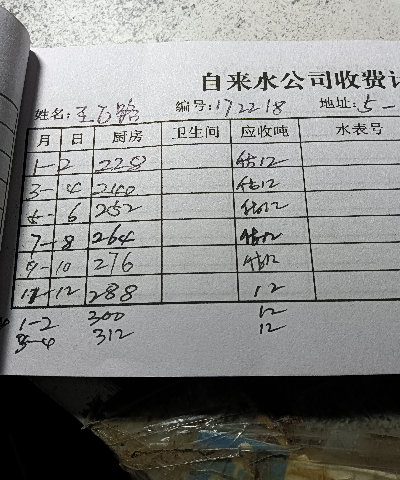 自来水公司收费
姓名:王 路 编号:172218 地址:5-
月 日 厨房 卫生间 应收吨 水表号
1-2 228 估12
3-4 240 估12
5-6 252 估12
7-8 264 估12
9-10 276 估12
11-12 288 12
1-2 300 12
3-4 312 12